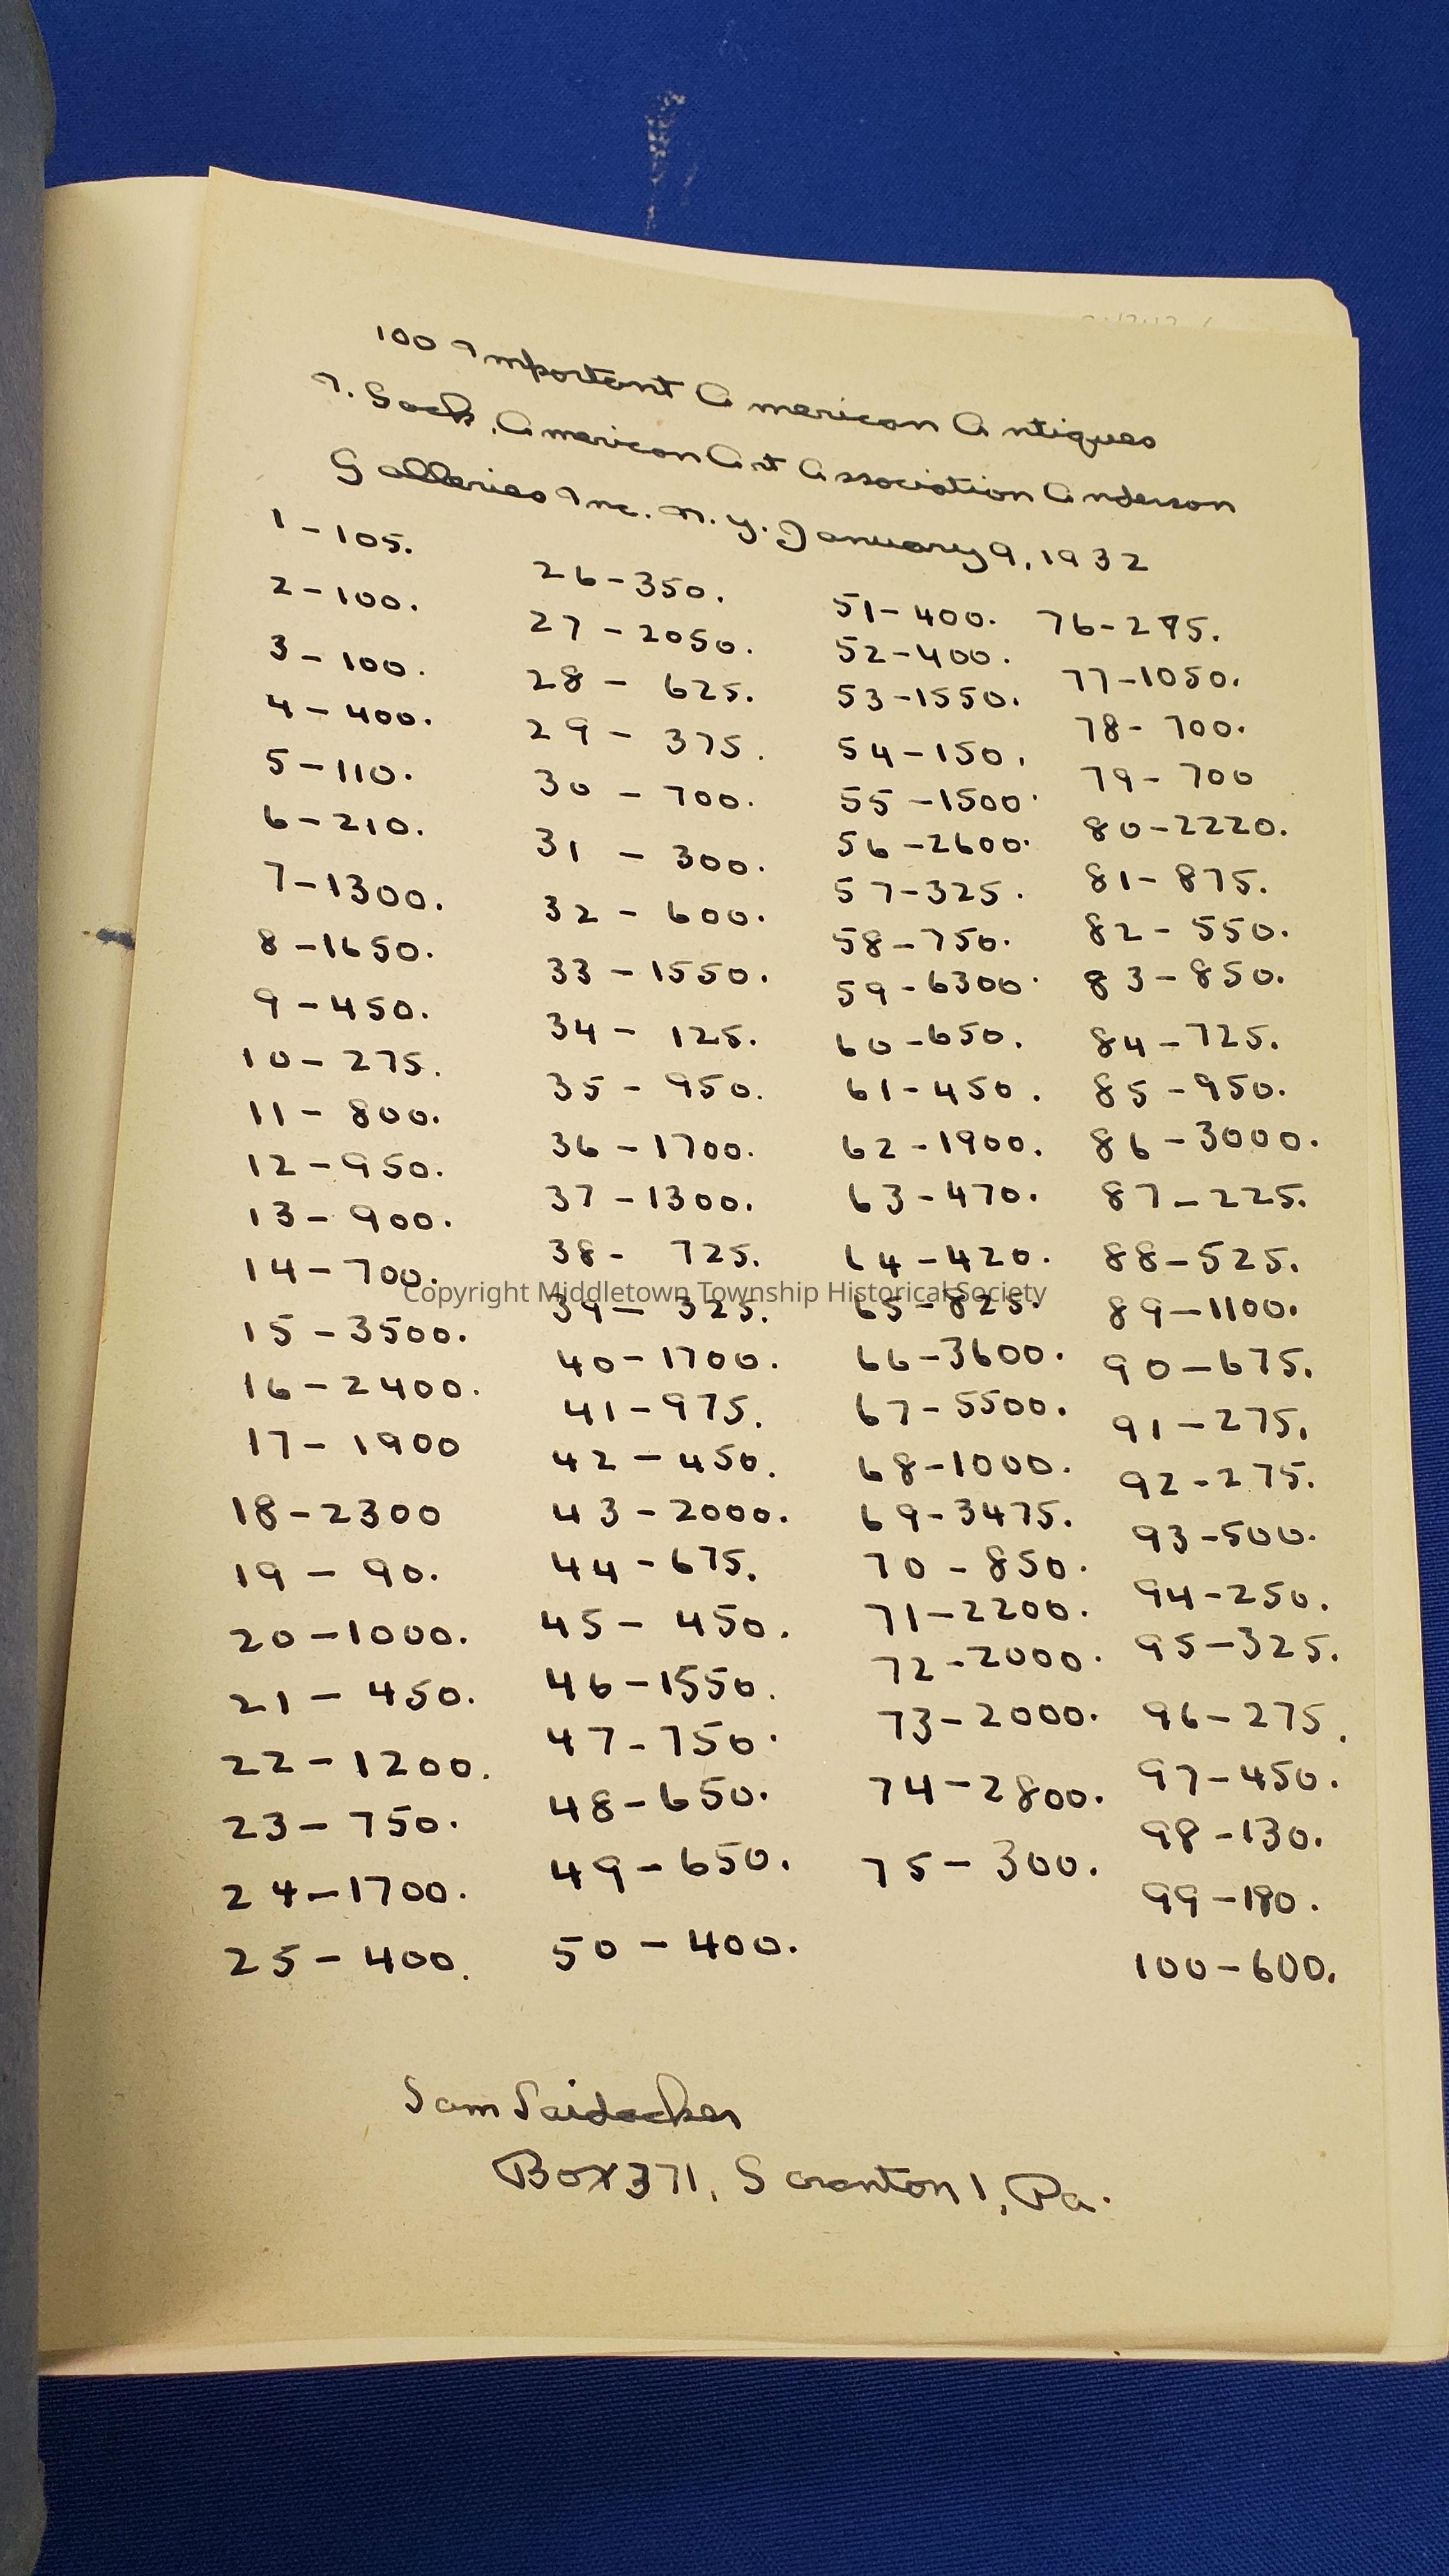 100 Important American Antiques
I. Sack, American Art Association Anderson
Galleries Inc. N.Y. January 9, 1932
1-105.
2-100.
3-100.
4-400.
5-110.
6-210.
7-1300.
8-1650.
9-450.
10-275.
11-800.
12-950.
13-900.
14-700.
15-3500.
16-2400.
17-1900
18-2300
19-90.
20-1000.
21-450.
22-1200.
23-750.
24-1700.
25-400.
26-350.
27-2050.
28-625.
29-375.
30-700.
31-300.
32-600.
33-1550.
34-125.
35-950.
36-1700.
37-1300.
38-725.
39-325.
40-1700.
41-975.
42-450.
43-2000.
44-675.
45-450.
46-1550.
47-750.
48-650.
49-650.
50-400.
51-400.
52-400.
53-1550.
54-150.
55-1500.
56-2600.
57-325.
58-750.
59-6300.
60-650.
61-450.
62-1900.
63-470.
64-420.
65-825.
66-3600.
67-5500.
68-1000.
69-3475.
70-850.
71-2200.
72-2000.
73-2000.
74-2800.
75-300.
76-275.
77-1050.
78-700.
79-700
80-2220.
81-875.
82-550.
83-850.
84-725.
85-950.
86-3000.
87-225.
88-525.
89-1100.
90-675.
91-275.
92-275.
93-500.
94-250.
95-325.
96-275.
97-450.
98-130.
99-
100-600.
Copyright Middletown Township Historical Society
Sam Saidacker
Box 371, Scranton 1, Pa.